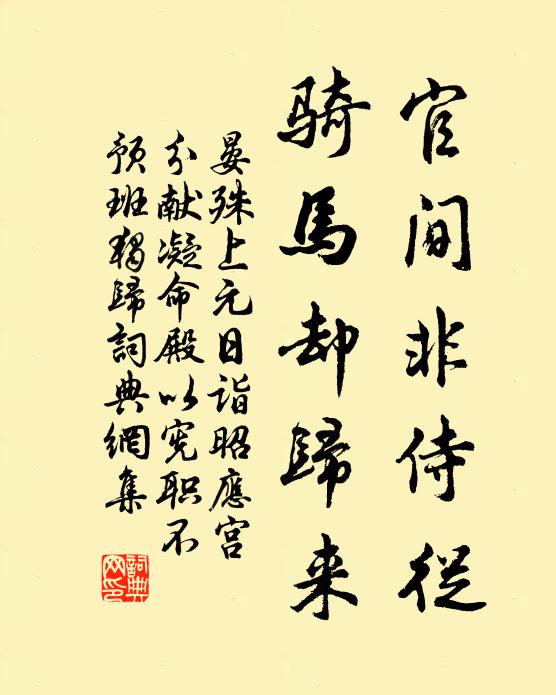 官間非侍從
騎馬却歸来
晏殊上元日詣昭應宫
分献凝命殿以宪职不
預班獨歸詞典網集
詞典
网印